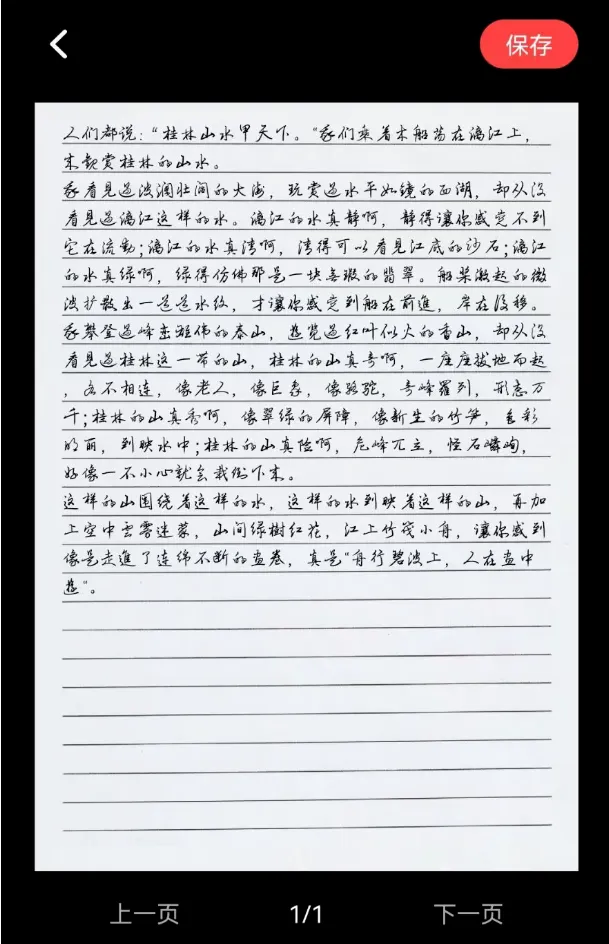 保存
人们都说：“桂林山水甲天下。”我们乘着木船荡在漓江上，
来观赏桂林的山水。
我看见过波澜壮阔的大海，玩赏过水平如镜的西湖，却从没
看见过漓江这样的水。漓江的水真静啊，静得让你感觉不到
它在流动；漓江的水真清啊，清得可以看见江底的沙石；漓江
的水真绿啊，绿得仿佛那是一块无瑕的翡翠。船桨激起的微
波扩散出一道道水纹，才让你感觉到船在前進，岸在後移。
我攀登过峰峦雄伟的泰山，遊览过红叶似火的香山，却从没
看见过桂林这一带的山，桂林的山真奇啊，一座座拔地而起
，各不相连，像老人，像巨象，像骆驼，奇峰罗列，形态万
千；桂林的山真秀啊，像翠绿的屏障，像新生的竹笋，色彩
明丽，倒映水中；桂林的山真险啊，危峰兀立，怪石嶙峋，
好像一不小心就会栽倒下来。
这样的山围绕着这样的水，这样的水倒映着这样的山，再加
上空中云雾迷蒙，山间绿樹红花，江上竹筏小舟，讓你感到
像是走進了连绵不断的画卷，真是“舟行碧波上，人在画中
遊”。
上一页
1/1
下一页